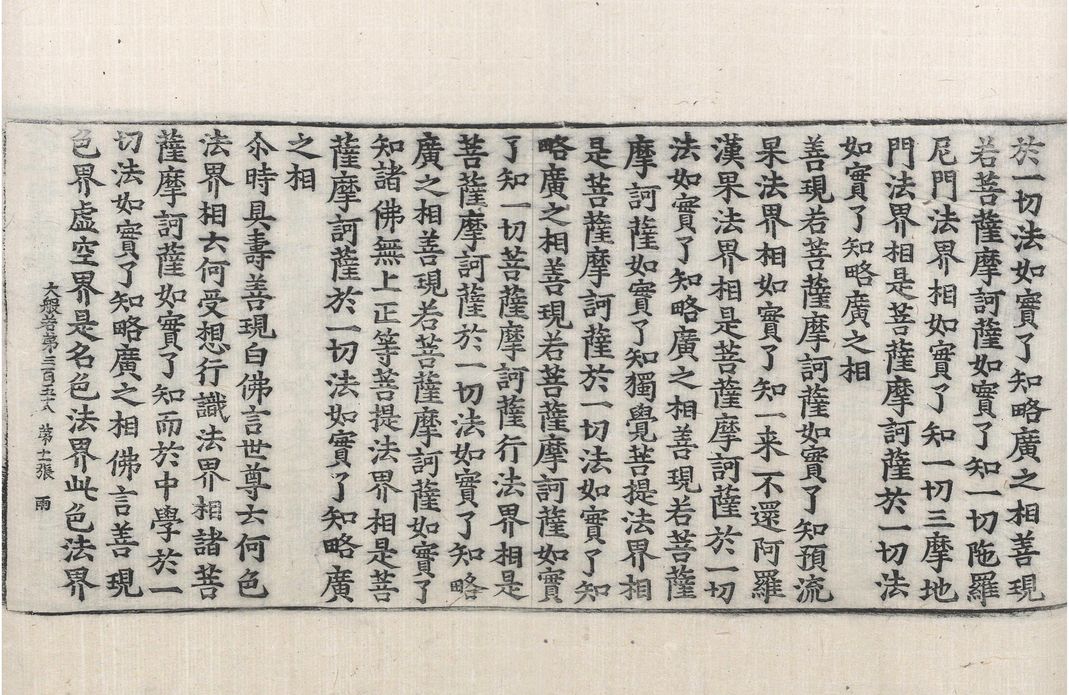 於一切法如實了知略廣之相善現
若菩薩摩訶薩如實了知一切陁羅
尼門法界相如實了知一切三摩地
門法界相是菩薩摩訶薩於一切法
如實了知略廣之相
善現若菩薩摩訶薩如實了知預流
果法界相如實了知一来不還阿羅
漢果法界相是菩薩摩訶薩於一切
法如實了知略廣之相善現若菩薩
摩訶薩如實了知獨覺菩提法界相
是菩薩摩訶薩於一切法如實了知
略廣之相善現若菩薩摩訶薩如實
了知一切菩薩摩訶薩行法界相是
菩薩摩訶薩於一切法如實了知略
廣之相善現若菩薩摩訶薩如實了
知諸佛無上正等菩提法界相是菩
薩摩訶薩於一切法如實了知略廣
之相
尒時具壽善現白佛言世尊云何色
法界相云何受想行識法界相諸菩
薩摩訶薩如實了知而於中學於一
切法如實了知略廣之相佛言善現
色界虛空界是名色法界此色法界
大般若第三百五十八 第十一張 雨